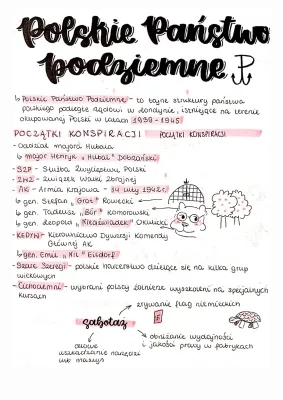 Polskie Państwo
podziemne
↳ Polskie Państwo Podziemne - to tajne struktury państwa
polskiego podległe rządowi w Londynie, istniejące na terenie
okupowanej Polski w latach 1939 - 1945.
POCZĄTKI KONSPIRACJI POCZĄTKI KONSPIRACJI
- Oddział majora Hubala
↳ major Henryk "Hubal" Dobrzański
- SZP - Służba Zwycięstwu Polski
- ZWZ - Związek Walki Zbrojnej
- AK - Armia Krajowa - 14 luty 1942 r.
↳ gen. Stefan "Grot" Rowecki
↳ gen. Tadeusz "Bór" Komorowski
↳ gen. Leopold "Niedźwiadek" Okulicki
- KEDYW - Kierownictwo Dywersji Komendy
Głównej AK
↳ gen. Emil "Nil" Fieldorf
- Szare Szeregi - polskie harcerstwo dzielące się na kilka grup
wiekowych
- Cichociemni - wybrani polscy żołnierze wyszkoleni na specjalnych
kursach
zrywanie flag niemieckich
sabotaż
obniżanie wydajności
i jakości pracy w fabrykach
celowe
uszkadzanie narzędzi
lub maszyn